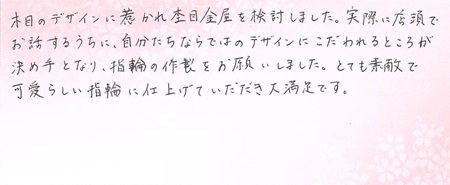 木目のデザインに惹かれ杢目金屋を検討しました。実際に店頭で
お話するうちに、自分たちならではのデザインにこだわれるところが
決め手となり、指輪の作製をお願いしました。とても素敵で
可愛らしい指輪に仕上げていただき大満足です。